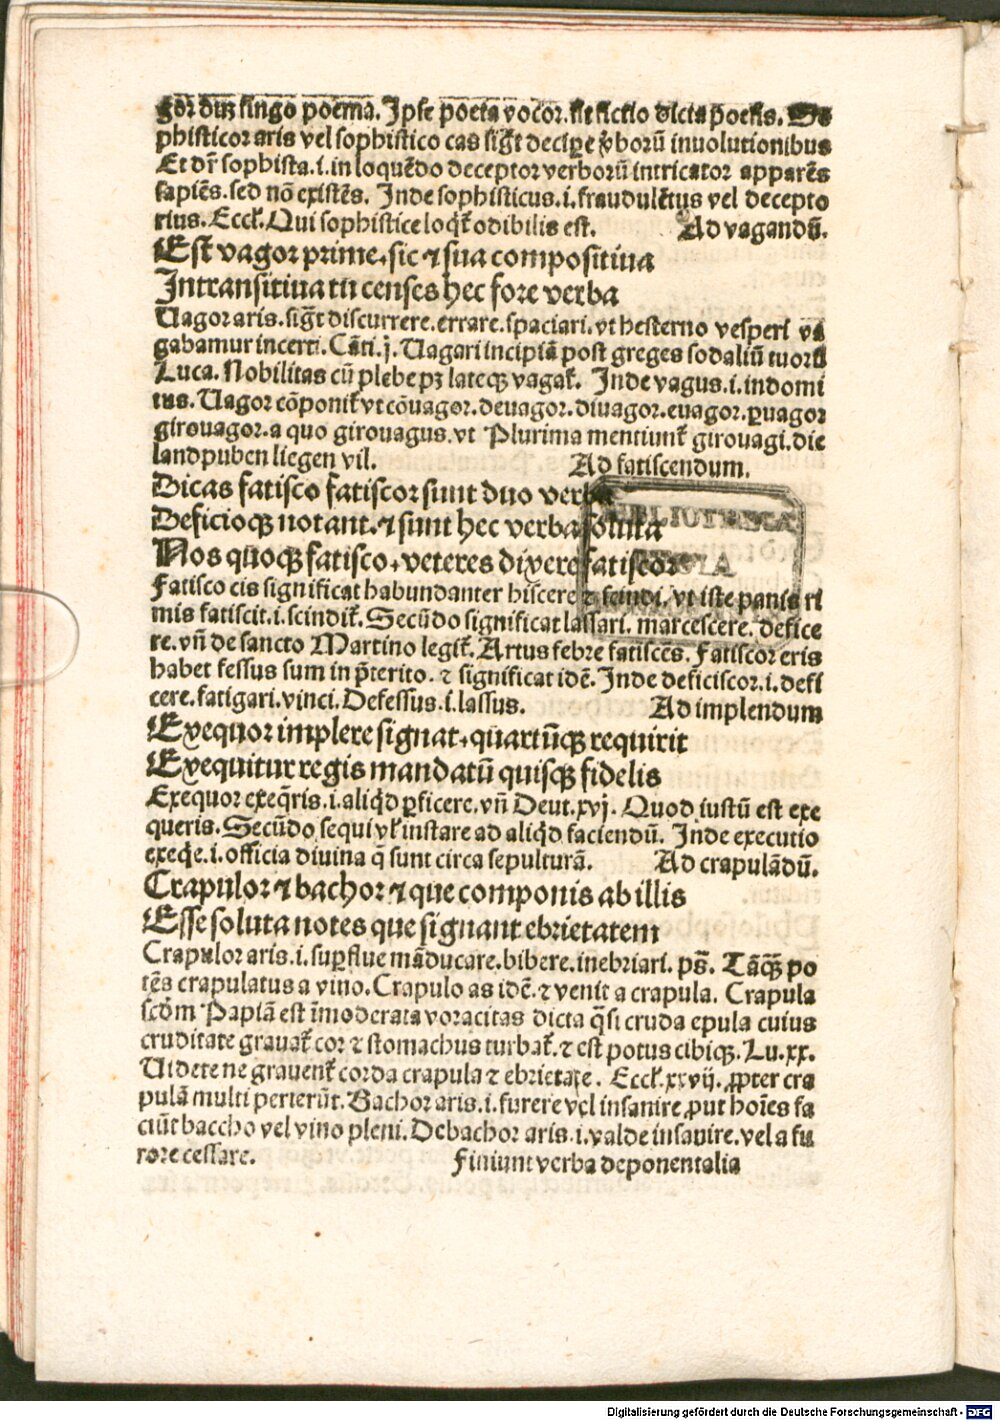 gor dūz fingo poema. Ipse poeta vocor. fit fictio dicta poesis. So
phisticor aris vel sophistico cas siḡt decipe v̓borū inuolutionibus
Et dr̄ sophista .i. in loquēdo deceptor verborū intricator apparēs
sapiēs. sed nō existēs. Inde sophisticus .i. fraudulētus vel decepto
rius. Eccl̓. Qui sophistice loqt̓ odibilis est. Ad vagandū.
Est vagor prime. sic ⁊ sua compositiua
Intransitiua tū censes hec fore verba
Uagor aris. siḡt discurrere. errare. spaciari. vt hesterno vesperi va
gabamur incerti. Cāti. j. Uagari incipiā post greges sodaliū tuorū
Luca. Nobilitas cū plebe pꝫ lateqꝫ vagat̓. Inde vagus .i. indomi
tus. Uagor cōponit̓ vt cōuagor. deuagor. diuagor. euagor. ꝑuagor
girouagor. a quo girouagus. vt Plurima mentiunt̓ girouagi. die
landpuben liegen vil. Ad fatiscendum.
Dicas fatisco fatiscor sunt duo verba
Deficioqꝫ notant. ⁊ sunt hec verba soluta
Nos quoqꝫ fatisco. veteres dixere fatiscor
Fatisco cis significat habundanter hiscere ⁊ scindi. vt iste panis ri
mis fatiscit .i. scindit̓. Secūdo significat lassari. marcescere. defice
re. vn̄ de sancto Martino legit̓. Artus febre fatiscēs. Fatiscor eris
habet fessus sum in p̄terito. ⁊ significat idē. Inde deficiscor .i. defi
cere. fatigari. vinci. Defessus .i. lassus. Ad implendum
Exequor implere signat. quartūqꝫ requirit
Exequitur regis mandatū quisqꝫ fidelis
Exequor exeq̄ris .i. aliqd̓ ꝑficere. vn̄ Deut. xvj. Quod iustū est exe
queris. Secūdo sequi vl̓ instare ad aliqd̓ faciendū. Inde executio
exeqe̓ .i. officia diuina q̄ sunt circa sepulturā. Ad crapulādū.
Crapulor ⁊ bachor ⁊ que componis ab illis
Esse soluta notes que signant ebrietatem
Crapulor aris .i. suꝑflue māducare. bibere. inebriari. ps̄. Tāqꝫ po
tēs crapulatus a vino. Crapulo as idē. ⁊ venit a crapula. Crapula
scd̓m Papiā est īmoderata voracitas dicta qsi̓ cruda epula cuius
cruditate grauat̓ cor ⁊ stomachus turbat̓. ⁊ est potus cibiqꝫ. Lu. xx.
Uidete ne grauent̓ corda crapula ⁊ ebrietate. Eccl̓. xxvij. ꝓpter cra
pulā multi perierūt. Bachor aris .i. furere vel insanire ꝓut hoīes fa
ciūt baccho vel vino pleni. Debachor aris .i. valde insanire. vel a fu
rore cessare. Finiunt verba deponentalia
BIBLIOTHECA
REGIA
Digitalisierung gefördert durch die Deutsche Forschungsgemeinschaft - DFG